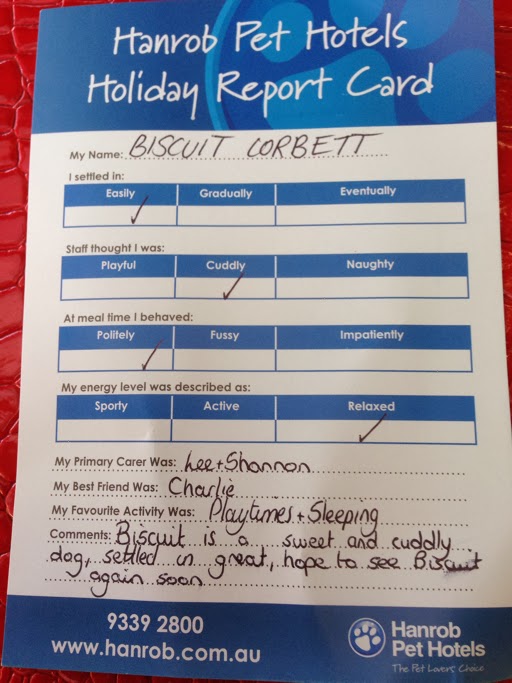 Hanrob Pet Hotels
Holiday Report Card
My Name: BISCUIT CORBETT
I settled in:
Easily Gradually Eventually
Staff thought I was:
Playful Cuddly Naughty
At meal time I behaved:
Politely Fussy Impatiently
My energy level was described as:
Sporty Active Relaxed
My Primary Carer Was: Lee + Shannon
My Best Friend Was: Charlie
My Favourite Activity Was: Playtimes + Sleeping
Comments: Biscuit is a sweet and cuddly
dog, settled in great, hope to see Biscuit
again soon
9339 2800
www.hanrob.com.au
Hanrob
Pet Hotels
The Pet Lovers Choice